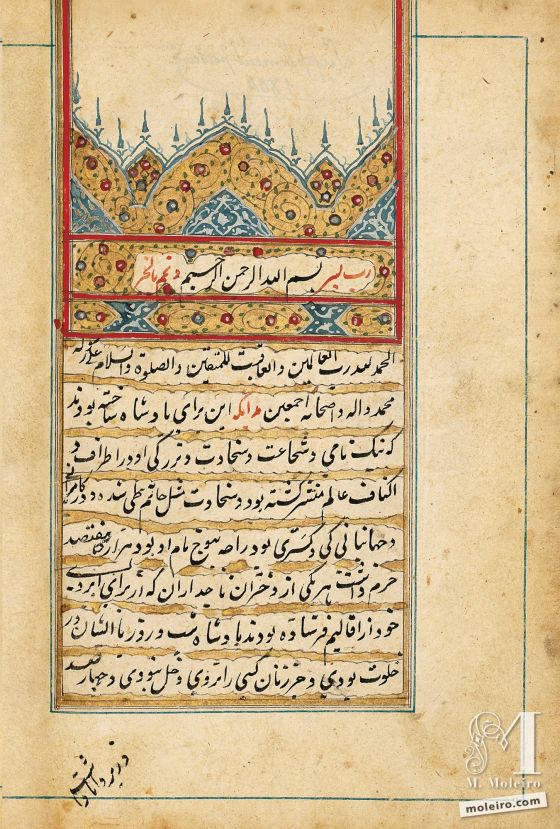 رب یسر بسم الله الرحمن الرحیم و تمم بالخیر
الحمد لله رب العالمین والعاقبت للمتقین والصلوة والسلام علی رسوله
محمد واله واصحابه اجمعین بدانکه این برای پادشاه ساخته بودند
که نیک نامی و شجاعت و سخاوت و بزرگی او در اطراف و
اکناف عالم منتشر گشته بود و سخاوت مثل حاتم طی شده و در کامرانی
و جهانبانی کی و کسری بود راجه بهوج نام او بود هزار
حرم داشت هر یکی از دختران تاجداران که از برای ابروی
خود از اقالیم فرستاده بودند پادشاه شب و روز با ایشان در
خلوت بودی و جز زنان کسی را بروی دخل نبودی و چهار صد
M
M. Moleiro
moleiro.com